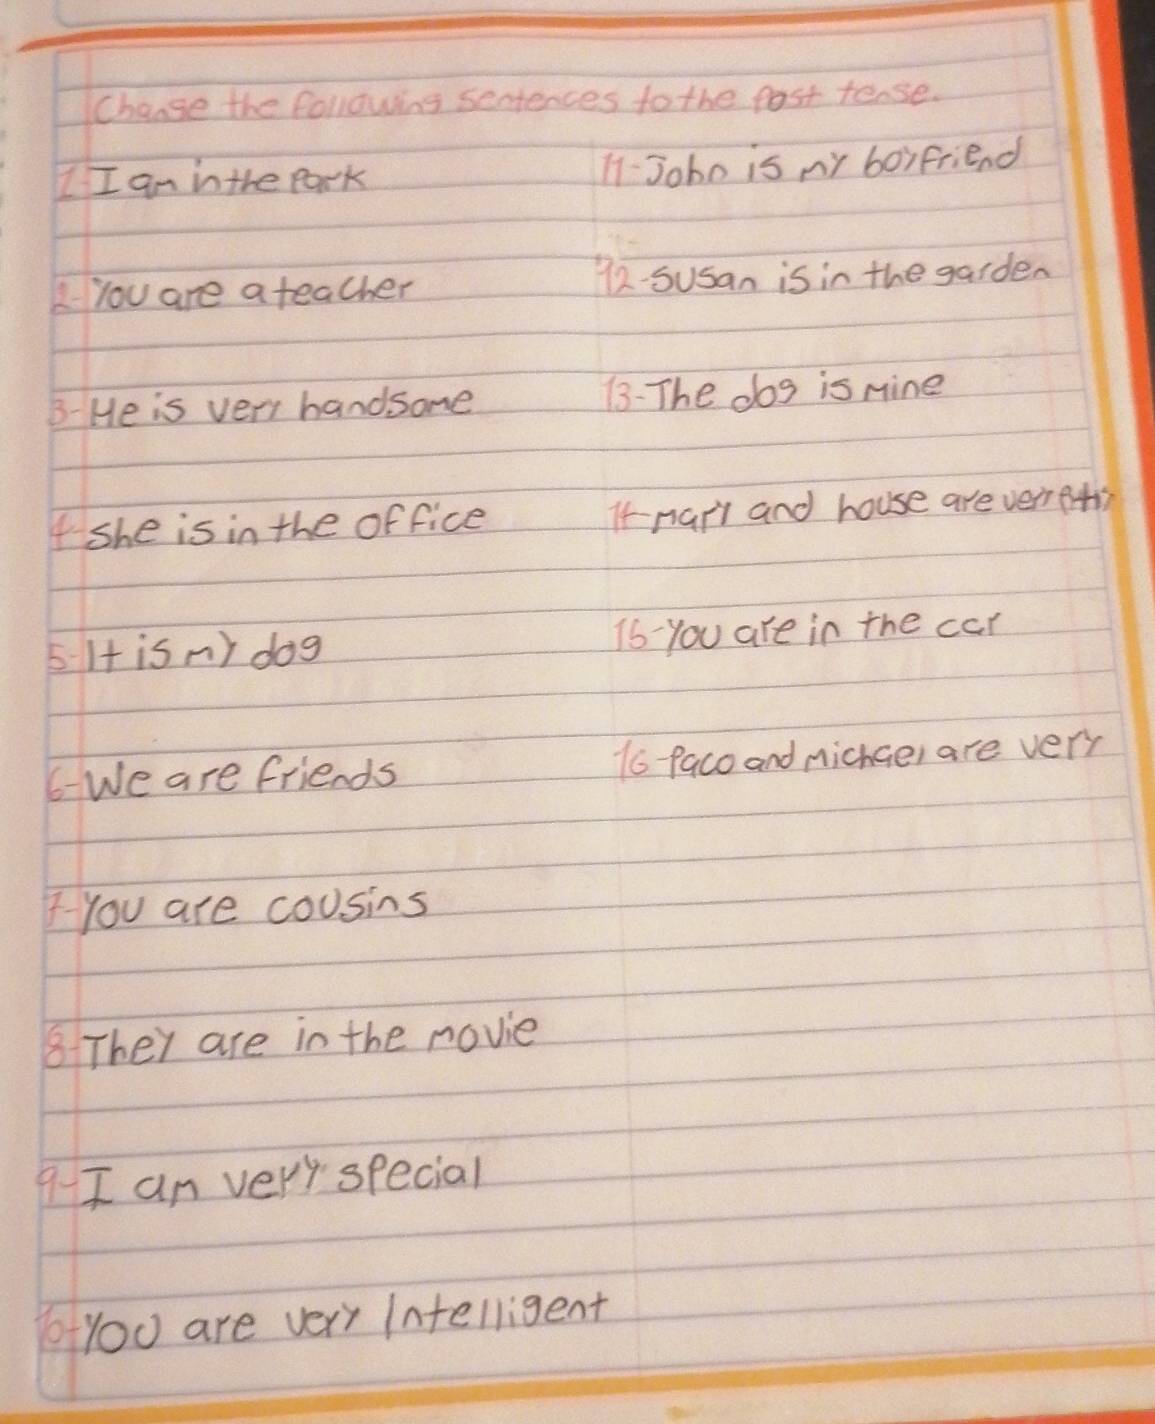 Change the following sentences to the past tense.
1-I am in the park
2-You are a teacher
3-He is very handsome
4-She is in the office
5-It is my dog
6-We are friends
7-You are cousins
8-They are in the movie
9-I am very special
10-You are very Intelligent
11-John is my boyfriend
12-Susan is in the garden
13-The dog is mine
14-Mary and house are very
15-You are in the car
16-Paco and Michael are very